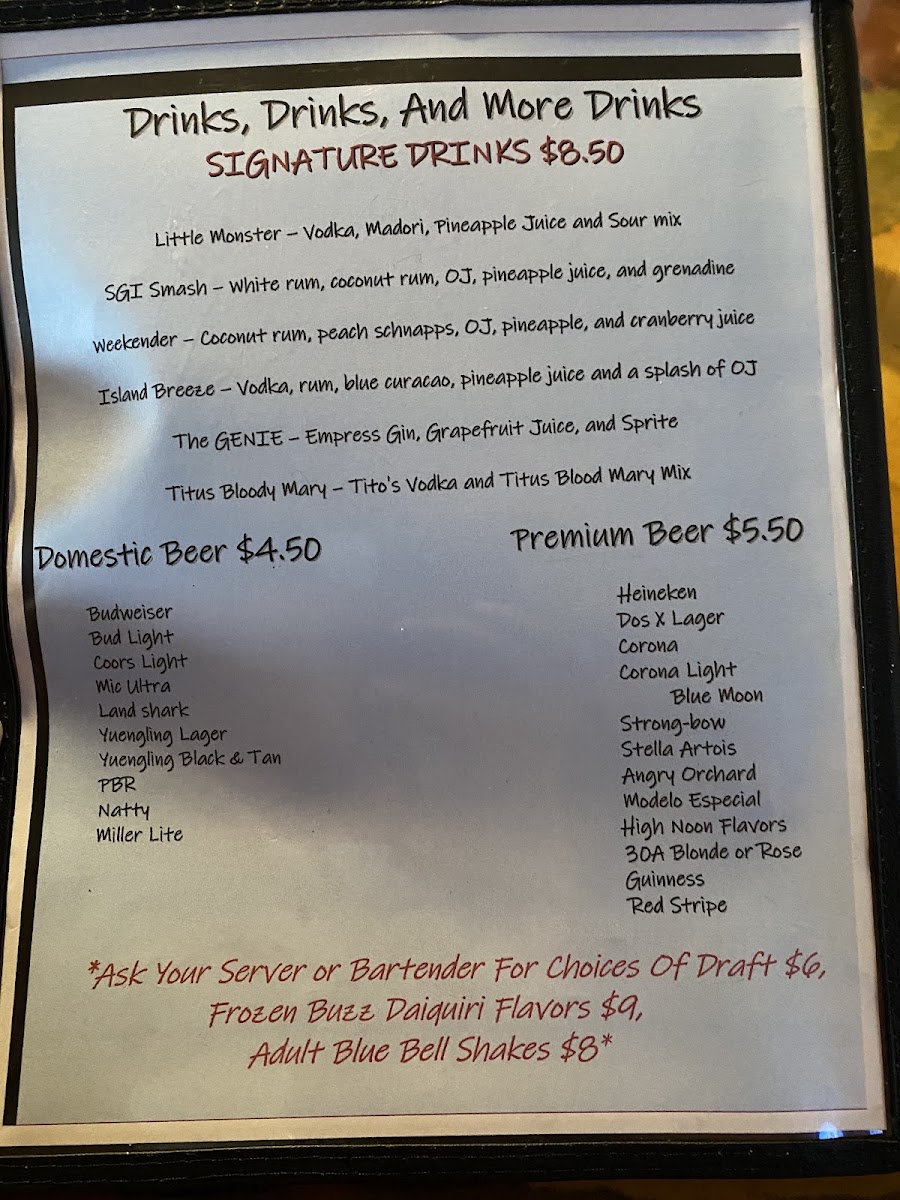 Drinks, Drinks, And More Drinks
SIGNATURE DRINKS $8.50
Little Monster – Vodka, Madori, Pineapple Juice and Sour mix
SGI Smash – White rum, coconut rum, OJ, pineapple juice, and grenadine
Weekender – Coconut rum, peach schnapps, OJ, pineapple, and cranberry juice
Island Breeze – Vodka, rum, blue curacao, pineapple juice and a splash of OJ
The GENIE – Empress Gin, Grapefruit Juice, and Sprite
Titus Bloody Mary – Tito's Vodka and Titus Blood Mary Mix
Domestic Beer $4.50
Budweiser
Bud Light
Coors Light
Mic Ultra
Land shark
Yuengling Lager
Yuengling Black & Tan
PBR
Natty
Miller Lite
Premium Beer $5.50
Heineken
Dos X Lager
Corona
Corona Light
Blue Moon
Strong-bow
Stella Artois
Angry Orchard
Modelo Especial
High Noon Flavors
30A Blonde or Rose
Guinness
Red Stripe
*Ask Your Server or Bartender For Choices Of Draft $6,
Frozen Buzz Daiquiri Flavors $9,
Adult Blue Bell Shakes $8*